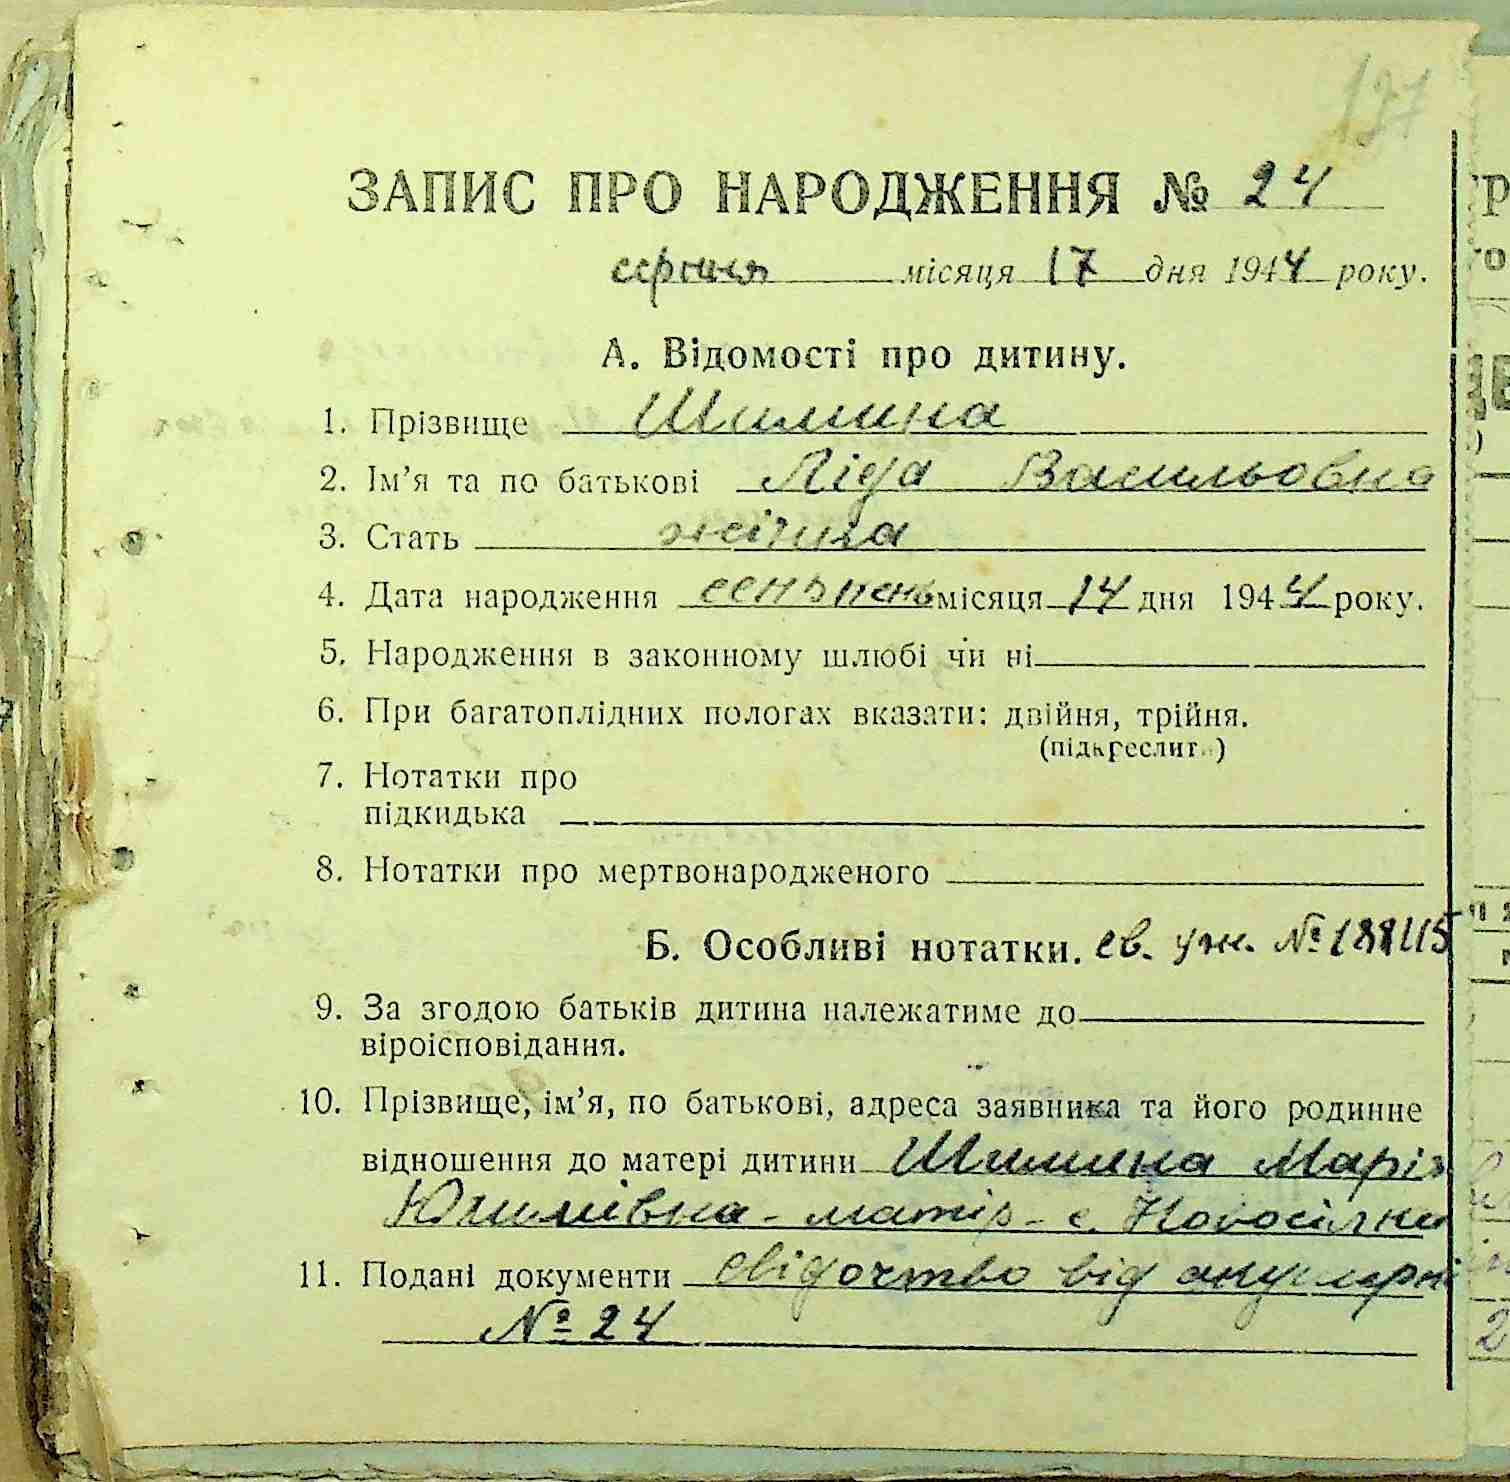 197
ЗАПИС ПРО НАРОДЖЕННЯ № 24
серпня місяця 17 дня 1944 року.
А. Відомості про дитину.
1. Прізвище Шимина
2. Ім’я та по батькові Ліда Васильовна
3. Стать жіноча
4. Дата народження місяця 14 дня 1944 року.
5. Народження в законному шлюбі чи ні
6. При багатоплідних пологах вказати: двійня, трійня.
(підкреслити)
7. Нотатки про
підкидька
8. Нотатки про мертвонародженого
Б. Особливі нотатки. св. уж. №
9. За згодою батьків дитина належатиме до
віроісповідання.
10. Прізвище, ім’я, по батькові, адреса заявника та його родинне
відношення до матері дитини Шимина Марія
матір - с. Новосілки
11. Подані документи свідочтво від акушерки
№ 24